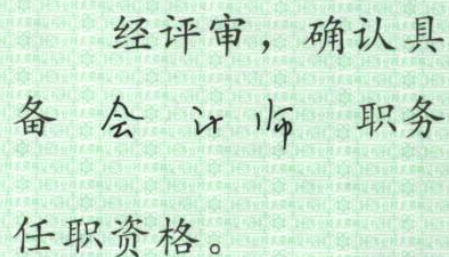 经评审，确认具
备 会计师 职务
任职资格。